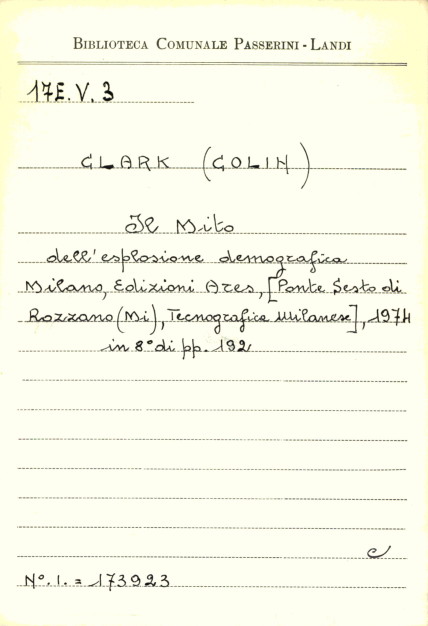 BIBLIOTECA COMUNALE PASSERINI - LANDI
17E.V. 3
CLARK (COLIN)
Il Mito
dell'esplosione demografica
Milano, Edizioni Ares, [Ponte Sesto di
Rozzano (Mi), Tecnografica Milanese], 1974
in 8° di pp. 192
c
N°. I. = 173923